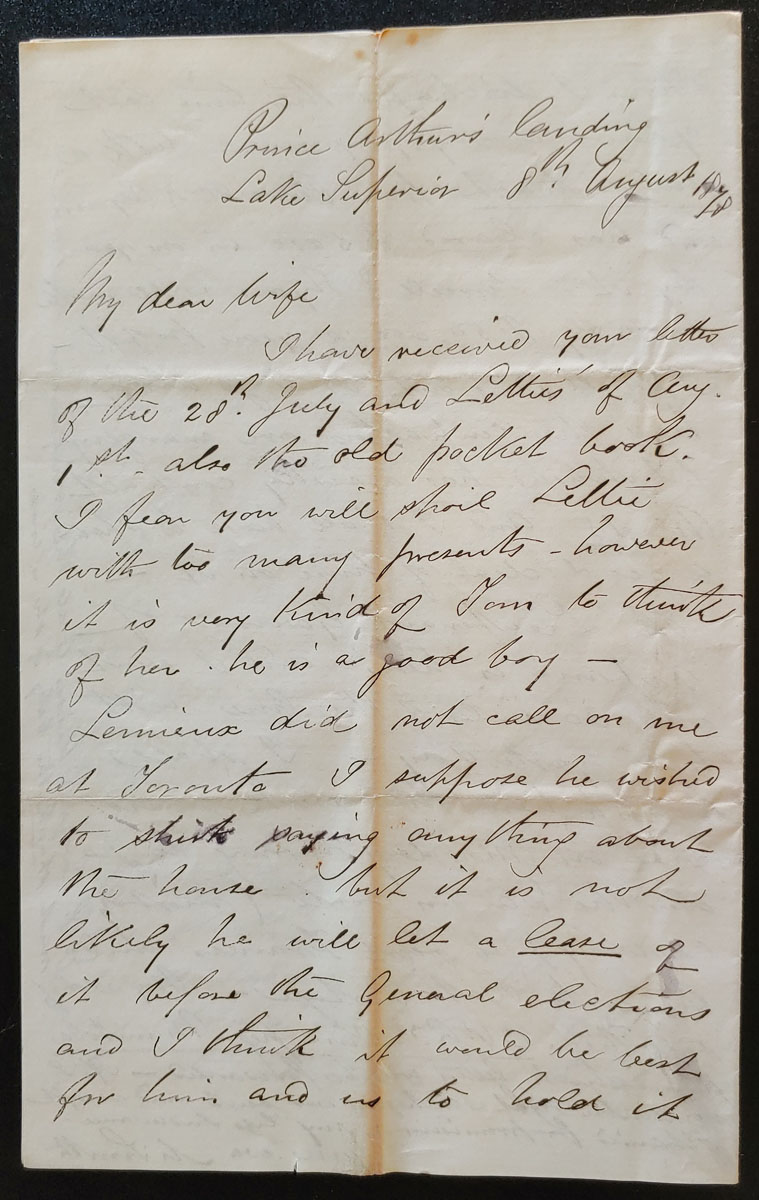 Prince Arthur's landing
Lake Superior 8th August 1878
My dear Wife
I have received your letter
of the 28th. July and Letties' of Aug.
1st - also the old pocket book.
I fear you will spoil Lettie
with too many presents - however
it is very kind of Tom to think
of her . he is a good boy —
Lemieux did not call on me
at Toronto I suppose he wished
to shirk saying anything about
the house . but it is not
likely he will let a lease of
it before the General elections
and I think it would be best
for him and us to hold it